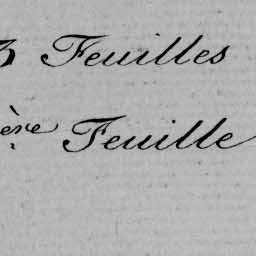 3 Feuilles
ère Feuille